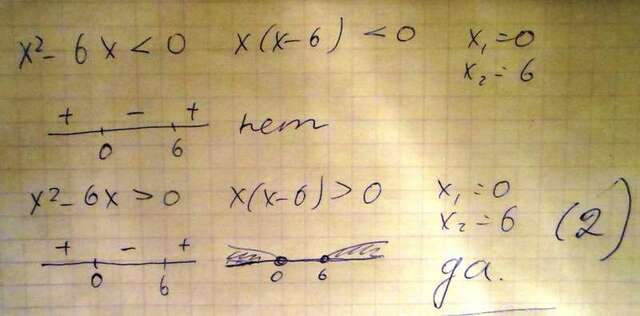 x² - 6x < 0 x(x-6) < 0 x₁ = 0
x₂ = 6
+ - +
0 6 нет
x² - 6x > 0 x(x-6) > 0 x₁ = 0
x₂ = 6 (2)
+ - +
0 6 0 6 да.